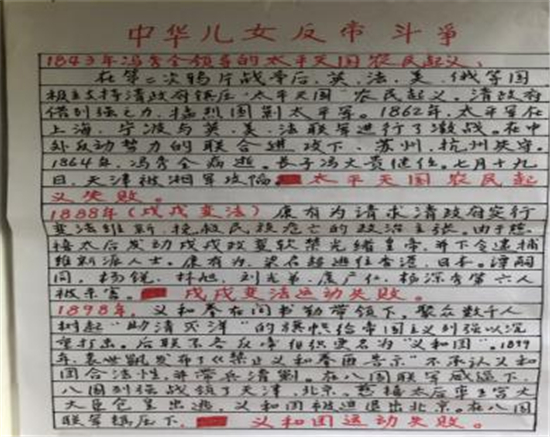 中华儿女反帝斗争
1843年冯秀全领导的太平天国农民起义:
在第二次鸦片战争后,英、法、美、俄等国
极力支持清政府镇压"太平天国"农民起义。清政府
借列强之力,猛烈围剿太平军。1862年,太平军在
上海、宁波与英、美、法联军进行了激战。在中
外反动势力的联合进攻下,苏州、杭州失守。
1864年,冯秀全病逝。长子冯天贵继任。七月十九
日,天津被湘军攻陷。太平天国农民起
义失败。
1888年(戊戌变法)康有为请求清政府实行
变法维新,挽救民族危亡的政治主张。由于慈
禧太后发动戊戌政变软禁光绪皇帝,并下令逮捕
维新派人士。康有为、梁启超逃往香港、日本。谭嗣
同、杨锐、林旭、刘光弟、康广仁、杨深秀等六人
被杀害。戊戌变法运动失败。
1898年,义和拳在阎书勤带领下,聚众数千人
树起"助清灭洋"的旗帜给帝国主义列强以沉
重打击。后联不各反帝组织更名为"义和团"。1899
年,袁世凯发布了《禁止义和拳匪告示》不承认义和
团合法性,并带兵清剿。在八国联军威逼下,
八国列强战领了天津、北京。慈禧太后率王宫大
大臣仓皇出逃,义和团被迫退出北京。在八国
联军镇压下,义和团运动失败。